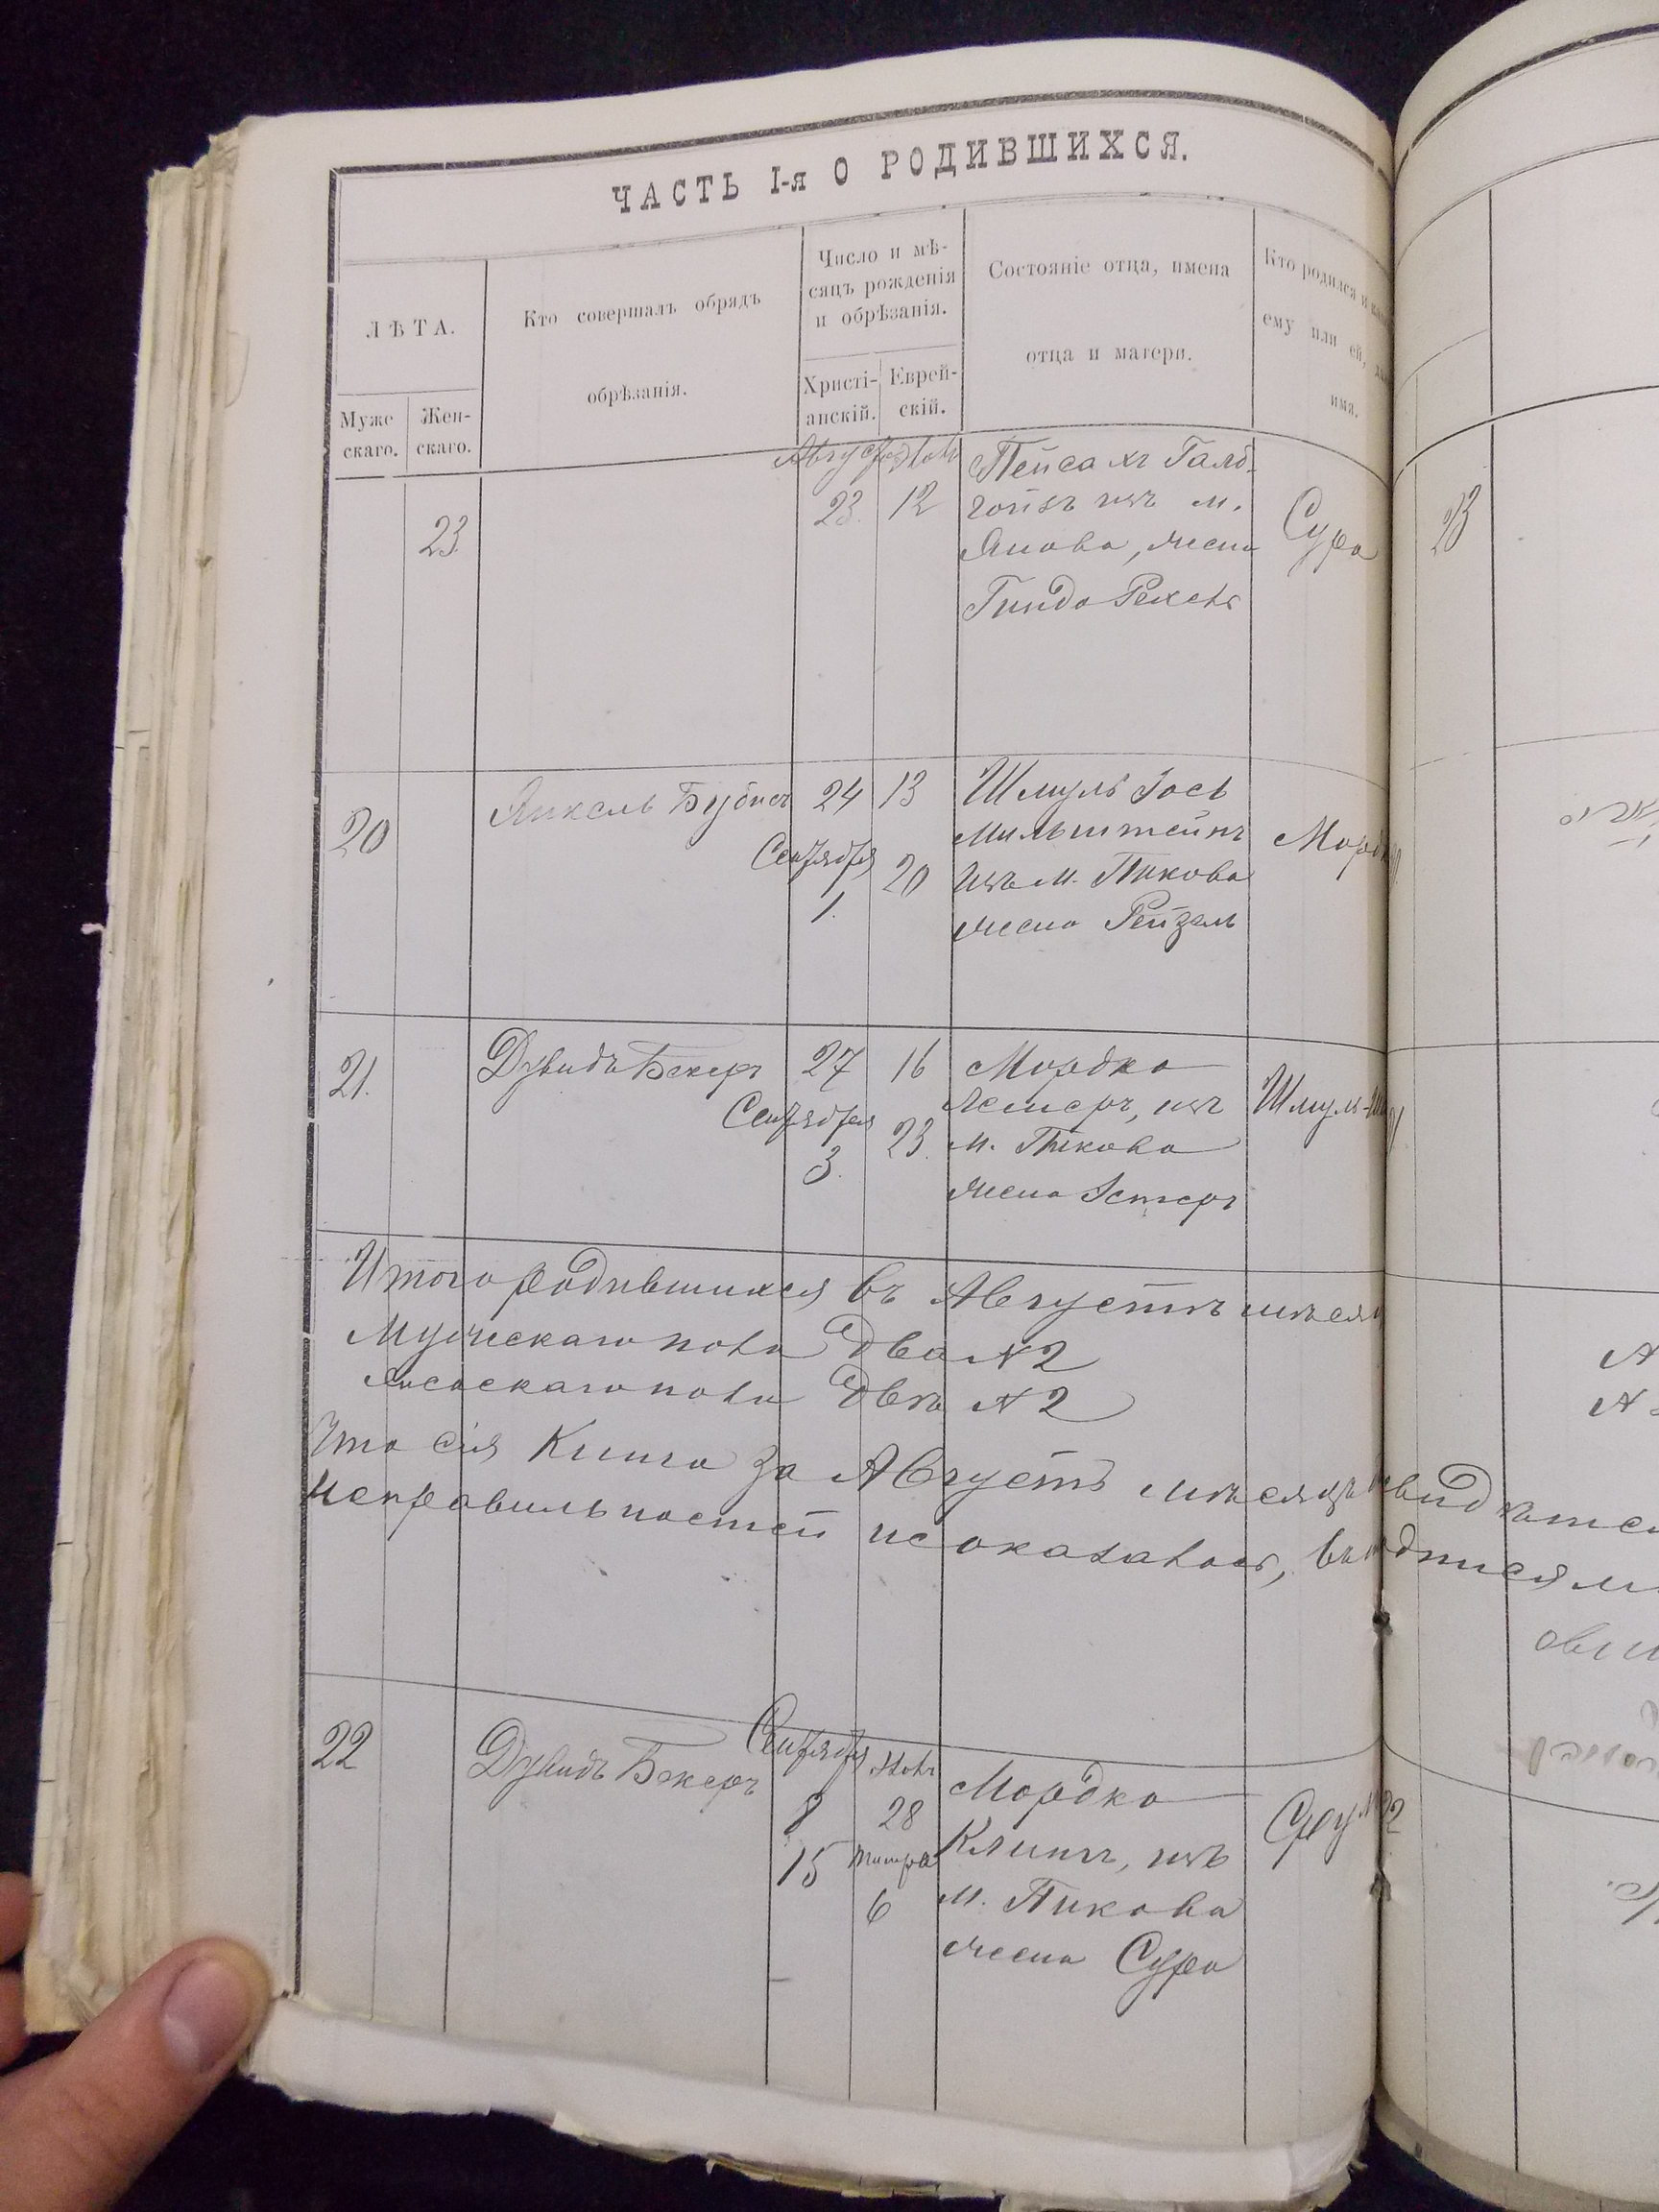 ЧАСТЬ I-я О РОДИВШИХСЯ.
ЛѢТА.
Муже
скаго.
Жен-
скаго.
Кто совершалъ обрядъ
обрѣзанія.
Число и мѣ-
сяцъ рожденія
и обрѣзанія.
Христі-
анскій.
Еврей-
скій.
Состояніе отца, имена
отца и матери.
Кто родился и
ему или ей,
имя.
23.
23.
12
Пейсахъ
изъ м.
Янова, жена
Гинда Рехель
Сура
23
20
Янкель
24
13
Сентября
1.
20
Шмуль Іось
Мильштейнъ
изъ м. Пикова
жена Рейзель
21.
Дувидъ Бекеръ
27
16
Сентября
3.
23.
Мордко
Лемеръ, изъ
м. Пикова
жена Эстеръ
Шмуль
Итого родившихся въ Августѣ мѣсяц
Мужескаго пола два № 2
Женскаго пола двѣ № 2
Что сія Книга за Августъ мѣсяцъ
неправильностей не оказалось, въ
22
Дувидъ Бекеръ
Сентября
8
15
28
Тишра
6
Мордко
изъ
м. Пикова
жена Сура
Срул
22